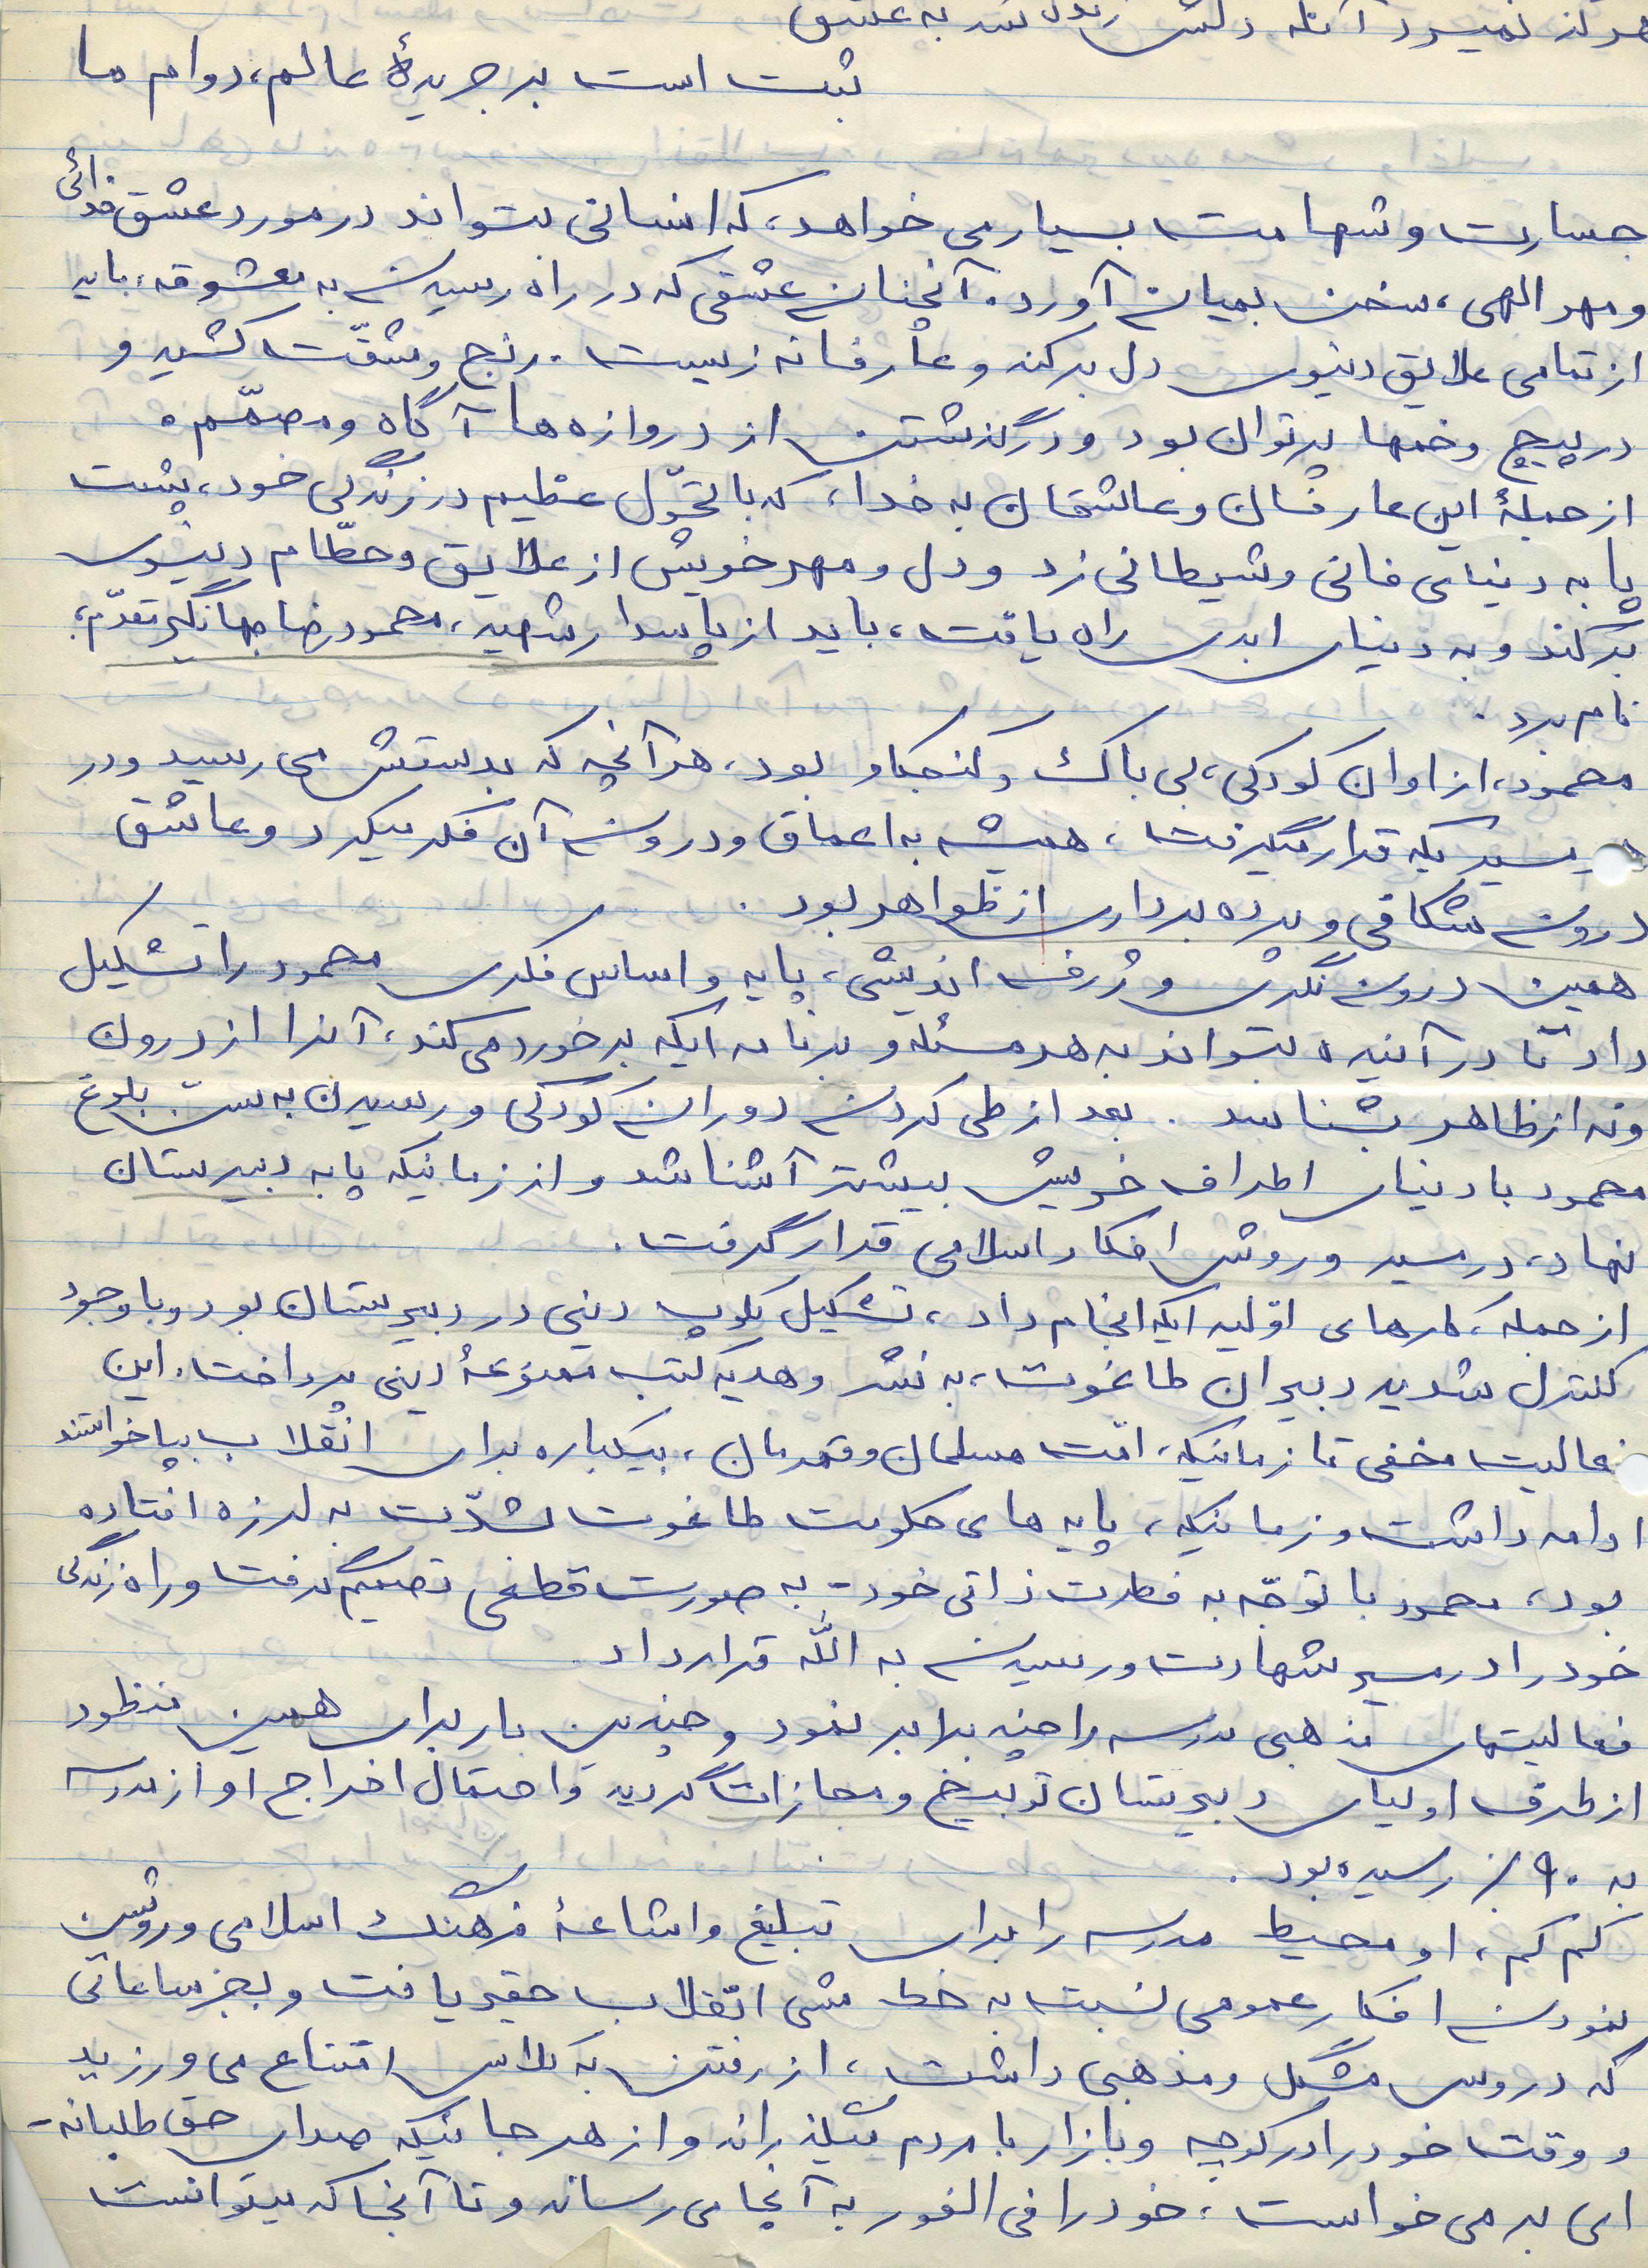 هرگز نمیرد آنکه دلش زنده شد به عشق
ثبت است بر جریدهٔ عالم، دوام ما
جسارت و شهامت بسیار می خواهد، که انسانی بتواند در مورد عشق خدائی
و مهر الهی، سخن بمیان آورد. آنچنان عشقی که در راه رسیدن به معشوقه، باید
از تمامی علایق دنیوی دل برکند و عارفانه زیست. رنج و مشقّت کشید و
در پیچ و خمها پرتوان بود و در گذشتن از دروازه ها آگاه و مصمّم.
از جملهٔ این عارفان و عاشقان به خدا، که با تحوّل عظیم در زندگی خود، پشت
پا به دنیای فانی و شیطانی زد و دل و مهر خویش از علایق و حطّام دنیوی
برکند و به دنیای ابدی راه یافت، باید از پاسدار شهید، محمود رضا جهانگیر تقدّم،
نام برد.
محمود، از اوان کودکی، بی باک و کنجکاو بود، هر آنچه که بدستش می رسید و در
مسیریکه قرار میگیرفت، همیشه به اعماق و درون آن فکر میکرد و عاشق
درون شکافی و پرده برداری از ظواهر بود.
همین درون نگری و ژرف اندیشی، پایه و اساس فکری محمود را تشکیل
داد تا در آینده بتواند به هر مسئله و برنامه ایکه برخورد می کند، آنرا از درون
و نه از ظاهر بشناسد. بعد از طی کردن دوران کودکی و رسیدن به سنّ بلوغ
محمود با دنیای اطراف خویش بیشتر آشنا شد و از زمانیکه پا به دبیرستان
نهاد، در مسیر و روش افکار اسلامی قرار گرفت.
از جمله کارهای اوّلیه ایکه انجام داد، تشکیل کلوپ دینی در دبیرستان بود و با وجود
کنترل شدید دبیران طاغوت، به نشر و هدیه کتب ممنوعهٔ دینی پرداخت. این
فعالیت مخفی تا زمانیکه، امّت مسلمان و قهرمان، بیکباره برای انقلاب بپا خواستند
ادامه داشت و زمانیکه، پایه های حکومت طاغوت بشدّت به لرزه افتاده
بود، محمود با توجّه به فطرت ذاتی خود - به صورت قطعی تصمیم گرفت و راه زندگی
خود را در مسیر شهادت و رسیدن به الله قرار داد.
فعالیتهای مذهبی مدرسه را چند برابر نمود و چندین بار برای همین منظور
از طرف اولیای دبیرستان توبیخ و مجازات گردید و احتمال اخراج او از مدرسه
به ۹۰٪ رسیده بود.
کم کم، او محیط مدرسه را برای تبلیغ و اشاعهٔ فرهنگ اسلامی و روشن
نمودن افکار عمومی نسبت به خط مشی انقلاب حقیر یافت و بجز ساعاتی
که دروس مشگل و مذهبی داشت، از رفتن به کلاس امتناع می ورزید
و وقت خود را در کوچه و بازار با مردم میگذراند و از هر جائیکه صدای حق طلبانه-
ای بر می خواست، خود را فی الفور به آنجا می رساند و تا آنجا که میتوانست